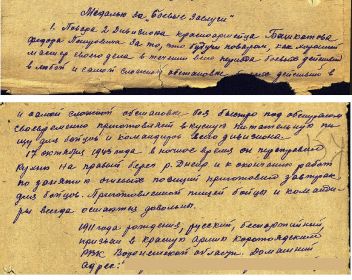 Медалью за „Боевые Заслуги"
1. Повара 2 дивизиона красноармейца Башкатова
Федора Петровича За то, что будучи поваром, как хороший
мастер своего дела в течении всего периода боевых действий
в любой и самой сложной обстановке боя действовал в
и самой сложной обстановке боя быстро под обстрелом
своевременно приготовляет вкусную питательную пи
щу для бойцов и командиров всего дивизиона.
17 октября 1943 года в ночное время он переправил
кухню на правый берег р. Днепр и к окончанию работ
по занятию огневых позиций приготовил завтрак
для бойцов. Приготовленной пищей бойцы и команди
ры всегда остаются довольны.
1911 года рождения, русский, беспартийный
призван в красную армию Коротоякским
РВК Воронежской области. Домашний
адрес: